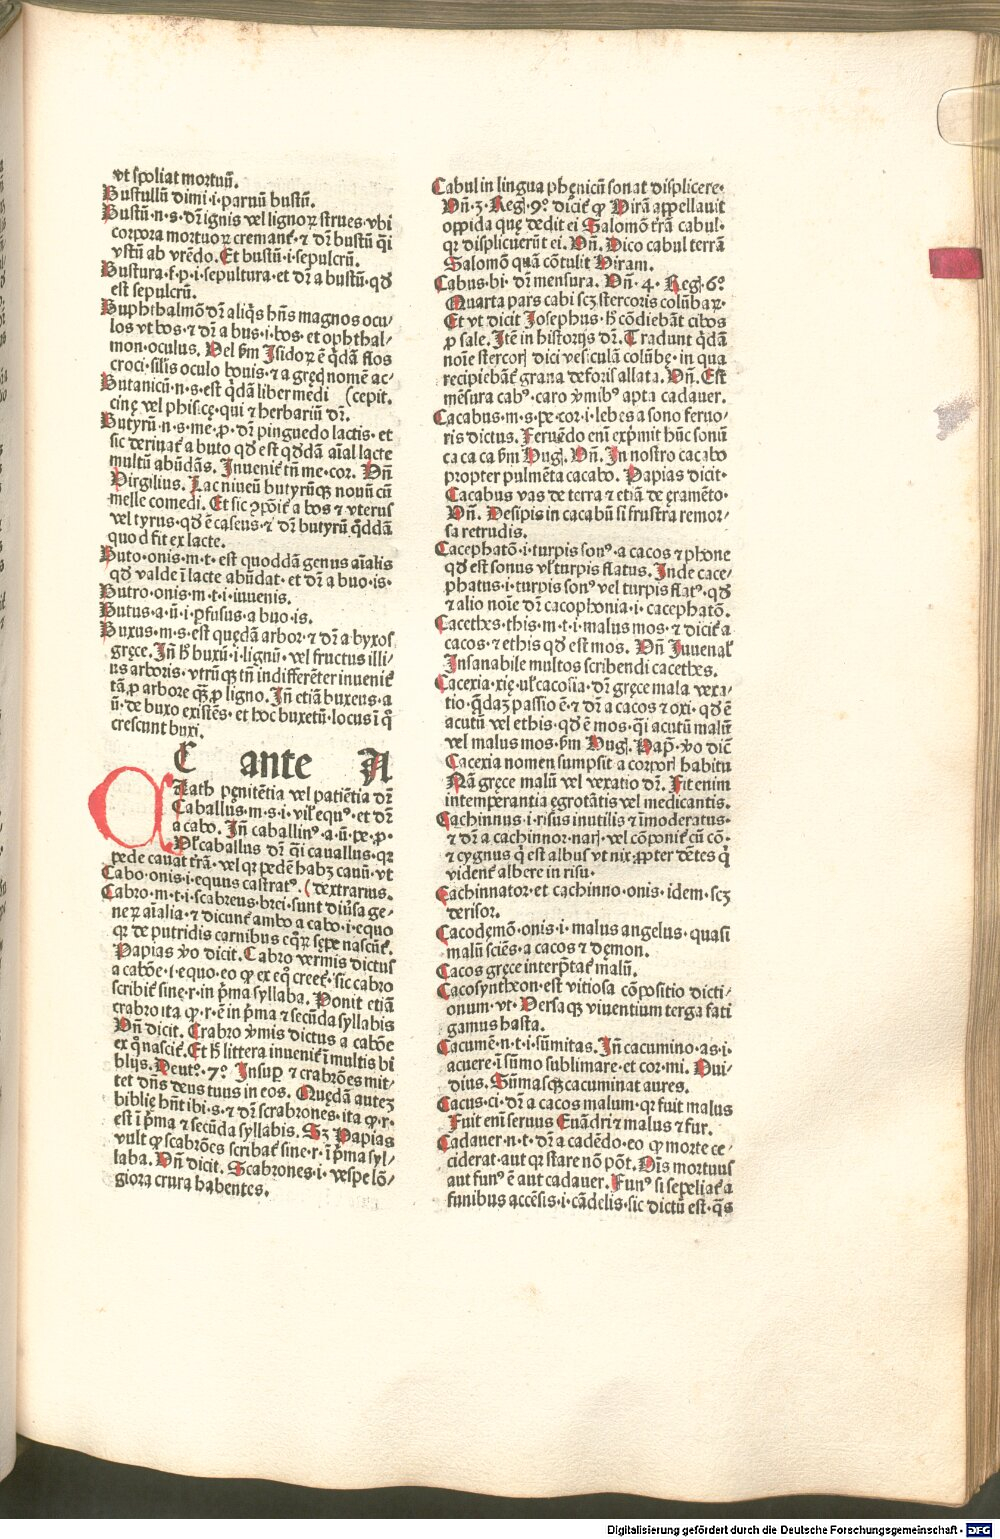 vt spoliat mortuū.
Bustullū dimi·i·paruū bustū.
Bustū·n·s·dr̄ ignis vel lignoꝝ strues·vbi
corpora mortuoꝝ cremant̄·⁊ dr̄ bustū q̄i
vstū ab vrēdo. Et bustū·i·sepulcrū.
Bustura·f·p·i·sepultura·et dr̄ a bustū·qd̄
est sepulcrū.
Buphthalmō dr̄ aliq̇s hn̄s magnos ocu/
los vt bos·⁊ dr̄ a bus·i·bos·et ophthal/
mon·oculus. Vel ẜm Isidoꝝ ē q̇dā flos
croci·silis oculo bouis·⁊ a gręcꝭ nomē ac/
Butanicū·n·s·est q̇dā liber medi (cepit.
cinę vel phisicę·qui ⁊ herbariū dr̄.
Butyrū·n·s·me·ꝓ·dr̄ pinguedo lactis·et
sic deriuat̄ a buto qd̄ est qd̄dā aīal lacte
multū abūdās. Inuenit̄ tn̄ me·cor. Vn̄
Virgilius. Lac niueū butyrūqꝫ nouū cū
melle comedi. Et sic ꝯpōit̄ a bos ⁊ vterus
vel tyrus·qd̄ ē caseus·⁊ dr̄ butyrū q̇ddā
quod fit ex lacte.
Buto·onis·m·t·est quoddā genus aīalis
qd̄ valde ī lacte abūdat·et dr̄ a buo·is·
Butro·onis·m·t·i·iuuenis.
Butus·a·ū·i·ꝓfusus·a buo·is.
Buxus·m·s·est quędā arbor·⁊ dr̄ a byxos
gręce. Jn̄ h̄ buxū·i·lignū·vel fructus illi/
us arboris·vtrūqꝫ tn̄ indifferēter inuenit̄
tā ꝓ arbore qꝫ̄ ꝓ ligno. Jn̄ etiā buxeus·a
ū·de buxo existēs·et hoc buxetū·locus ī q̊
crescunt buxi.
C ante A
Cath pęnitētia vel patiētia dr̄
Caballus·m·s·i·vil̄ equꝰ·et dr̄
a cabo. Jn̄ caballinꝰ·a·ū·pe·ꝓ·
Vl̄ caballus dr̄ q̄i cauallus·qꝛ
pede cauat t̄rā·vel qꝛ pedē habꝫ cauū·vt
Cabo·onis·i·equus castratꝰ. (dextrarius.
Cabro·m·t·i·scabreus·brei·sunt diu̓sa ge/
neꝝ aīalia·⁊ dicunt̄ ambo a cabo·i·equo
qꝛ de putridis carnibus eq̊ꝝ sępe nascūt̄.
Papias v̊o dicit. Cabro vermis dictus
a cabōe·i·equo·eo ꝙ ex eq̊ creet̄·sic cabro
scribit̄ sine·r·in p̄ma syllaba. Ponit etiā
crabro ita ꝙ·r·ē in p̄ma ⁊ secūda syllabis
Vn̄ dicit. Crabro v̓mis dictus a cabōe
ex q̊ nascit̄. Et h̄ littera inuenit̄ ī multis bi
blijs. Deutꝰ·7º Insuꝑ ⁊ crabrōes mit/
tet dn̄s deus tuus in eos. Quędā autez
biblię hn̄t ibi·s·⁊ dr̄ scrabrones·ita ꝙ·r·
est ī p̄ma ⁊ secūda syllabis. Sꝫ Papias
vult ꝙ scabrōes scribat̄ sine·r·ī p̄ma syl/
laba. Vn̄ dicit. Scabrones·i·vespe lō/
giora crura habentes.
Cabul in lingua phęnicū sonat displicere·
Vn̄·3·Reg·9º dicit̄ ꝙ Hirā appellauit
oppida quę dedit ei Salomō t̄rā cabul·
qꝛ displicuerūt ei. Vn̄. Dico cabul terrā
Salomō quā cōtulit Hiram.
Cabus·bi·dr̄ mensura. Vn̄·4·Reg·6º
Quarta pars cabi scꝫ stercoris colūbaꝝ.
Et vt dicit Josephus·h̄ cōdiebāt cibos
ꝓ sale. Itē in historijs dr̄. Tradunt q̇dā
noīe stercorꝭ dici vesiculā colūbę·in qua
recipiebāt̄ grana deforis allata. Vn̄. Est
mēsura cabꝰ·caro v̓mibꝰ apta cadauer.
Cacabus·m·s·pe·cor·i·lebes a sono feruo/
ris dictus. Feruēdo enī exp̄mit hūc sonū
ca ca ca ẜm Hugꝭ. Vn̄. In nostro cacabo
propter pulmēta cacabo. Papias dicit·
Cacabus vas de terra ⁊ etiā de ęramēto·
Vn̄. Desipis in cacabū si frustra remor/
sa retrudis.
Cacephatō·i·turpis sonꝰ·a cacos ⁊ phone
qd̄ est sonus vl̄ turpis flatus. Inde cace/
phatus·i·turpis sonꝰ vel turpis flatꝰ·qd̄
⁊ alio noīe dr̄ cacophonia·i·cacephatō.
Cacethes·this·m·t·i·malus mos·⁊ dicit̄ a
cacos·⁊ ethis qd̄ est mos. Vn̄ Juuenal̄
Insanabile multos scribendi cacethes.
Cacexia·xię·vl̄ cacosia·dr̄ gręce mala vexa/
tio·q̄daꝫ passio ē·⁊ dr̄ a cacos ⁊ oxi·qd̄ ē
acutū vel ethis·qd̄ ē mos·q̄i acutū malū
vel malus mos·ẜm Hugꝭ. Pap̄ v̊o dic̄
Cacexia nomen sumpsit a corporꝭ habitu
Nā gręce malū vel vexatio dr̄. Fit enim
intemperantia ęgrotātis vel medicantis.
Cachinnus·i·risus inutilis ⁊ īmoderatus·
⁊ dr̄ a cachinnor·narꝭ·vel cōponit̄ cū cō·
⁊ cygnus q̇ est albus vt nix·ꝓpter dētes q̇
vident̄ albere in risu·
Cachinnator·et cachinno·onis·idem·scꝫ
derisor.
Cacodęmō·onis·i·malus angelus·quasi
malū sciēs·a cacos ⁊ dęmon.
Cacos gręce interp̄tat̄ malū.
Cacosyntheon·est vitiosa cōpositio dicti/
onum·vt·Versa qꝫ viuentium terga fati
gamus hasta.
Cacumē·n·t·i·sūmitas. Jn̄ cacumino·as·i·
acuere·ī sūmo sublimare·et cor·mi. Oui/
dius. Sūmasqꝫ cacuminat aures.
Cacus·ci·dr̄ a cacos malum·qꝛ fuit malus
Fuit enī seruus Euādri ⁊ malus ⁊ fur.
Cadauer·n·t·dr̄ a cadēdo·eo ꝙ morte ce/
ciderat·aut qꝛ stare nō pōt. Oīs mortuus
aut funꝰ ē aut cadauer. Funꝰ si sepeliat̄ a
funibus accēsis·i·cādelis·sic dictū est·q̄s
Digitalisierung gefördert durch die Deutsche Forschungsgemeinschaft - DFG